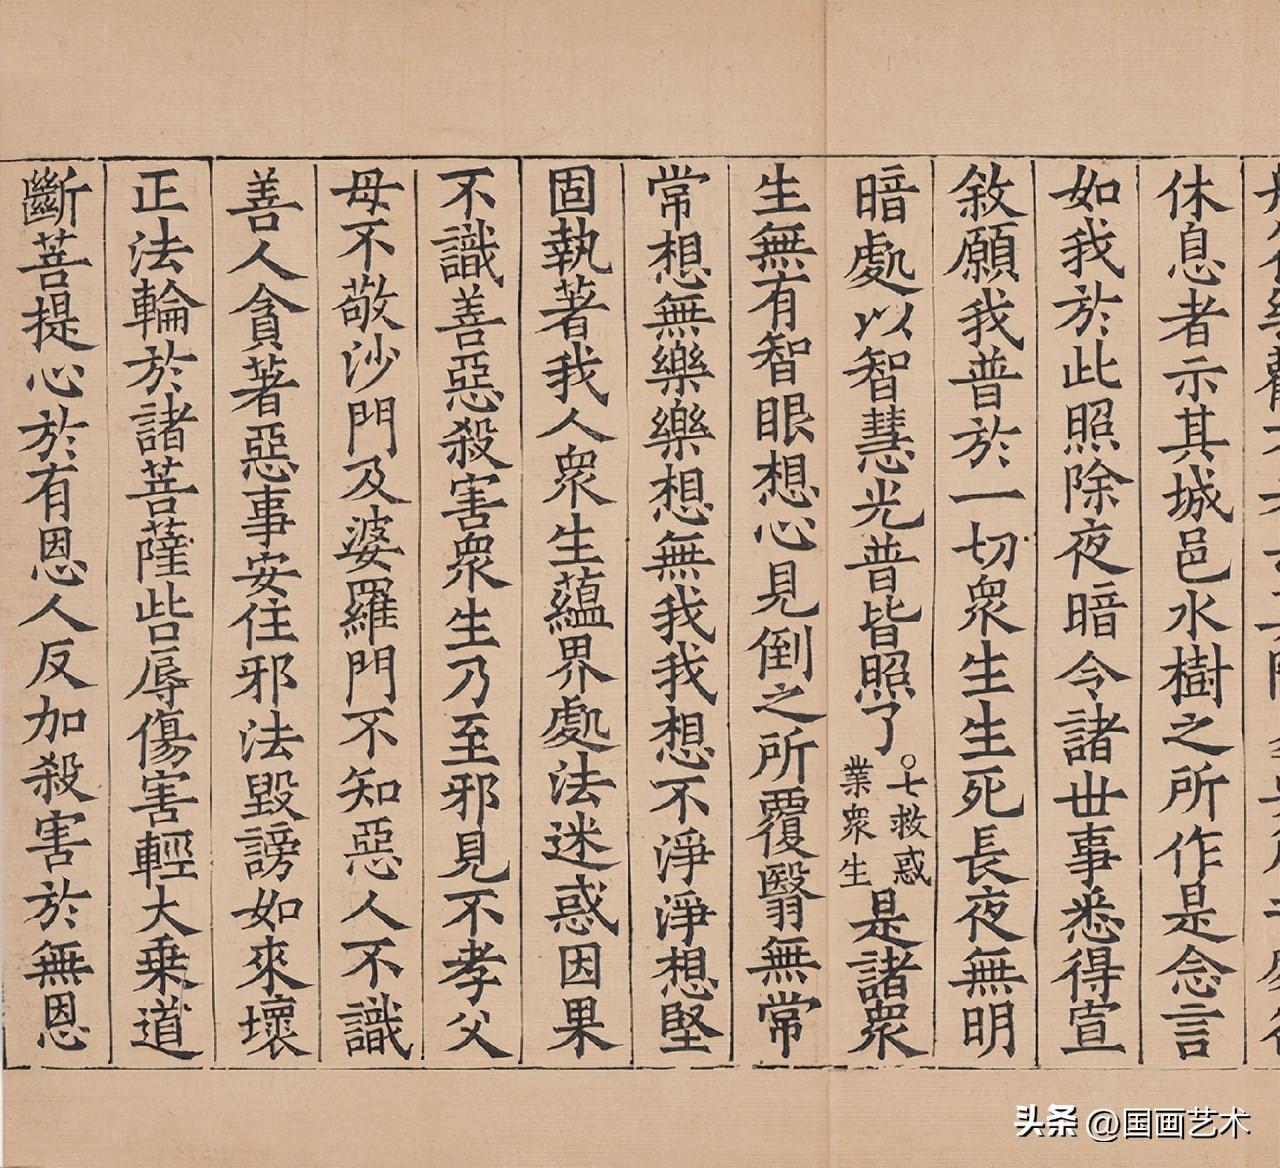 休息者示其城邑水樹之所作是念言
如我於此照除夜暗令諸世事悉得宣
敘願我普於一切衆生生死長夜無明
暗處以智慧光普皆照了
○七救惑
業衆生
是諸衆
生無有智眼想心見倒之所覆翳無常
常想無樂樂想無我我想不淨淨想堅
固執著我人衆生蘊界處法迷惑因果
不識善惡殺害衆生乃至邪見不孝父
母不敬沙門及婆羅門不知惡人不識
善人貪著惡事安住邪法毀謗如來壞
正法輪於諸菩薩呰辱傷害輕大乗道
斷菩提心於有恩人反加殺害於無恩
头条 @国画艺术